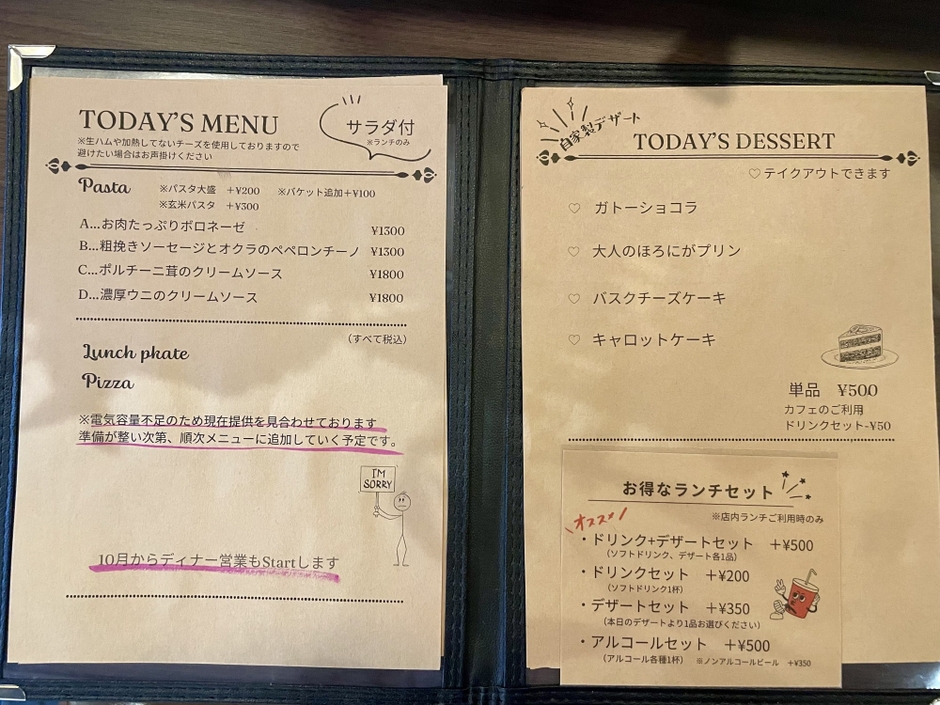 TODAY'S MENU
※生ハムや加熱してないチーズを使用しておりますので
避けたい場合はお声掛けください
サラダ付
※ランチのみ
Pasta
※パスタ大盛 +¥200 ※バケット追加+¥100
※玄米パスタ +¥300
A...お肉たっぷりボロネーゼ ¥1300
B...粗挽きソーセージとオクラのペペロンチーノ ¥1300
C...ポルチーニ茸のクリームソース ¥1800
D...濃厚ウニのクリームソース ¥1800
(すべて税込)
Lunch pkate
Pizza
※電気容量不足のため現在提供を見合わせております
準備が整い次第、順次メニューに追加していく予定です。
I'M
SORRY
10月からディナー営業もStartします
自家製デザート
TODAY'S DESSERT
♡テイクアウトできます
♡ ガトーショコラ
♡ 大人のほろにがプリン
♡ バスクチーズケーキ
♡ キャロットケーキ
単品 ¥500
カフェのご利用
ドリンクセット-¥50
お得なランチセット
※店内ランチご利用時のみ
オススメ!
・ドリンク+デザートセット +¥500
(ソフトドリンク、デザート各1品)
・ドリンクセット +¥200
(ソフトドリンク1杯)
・デザートセット +¥350
(本日のデザートより1品お選びください)
・アルコールセット +¥500
(アルコール各種1杯) ※ノンアルコールビール +¥350